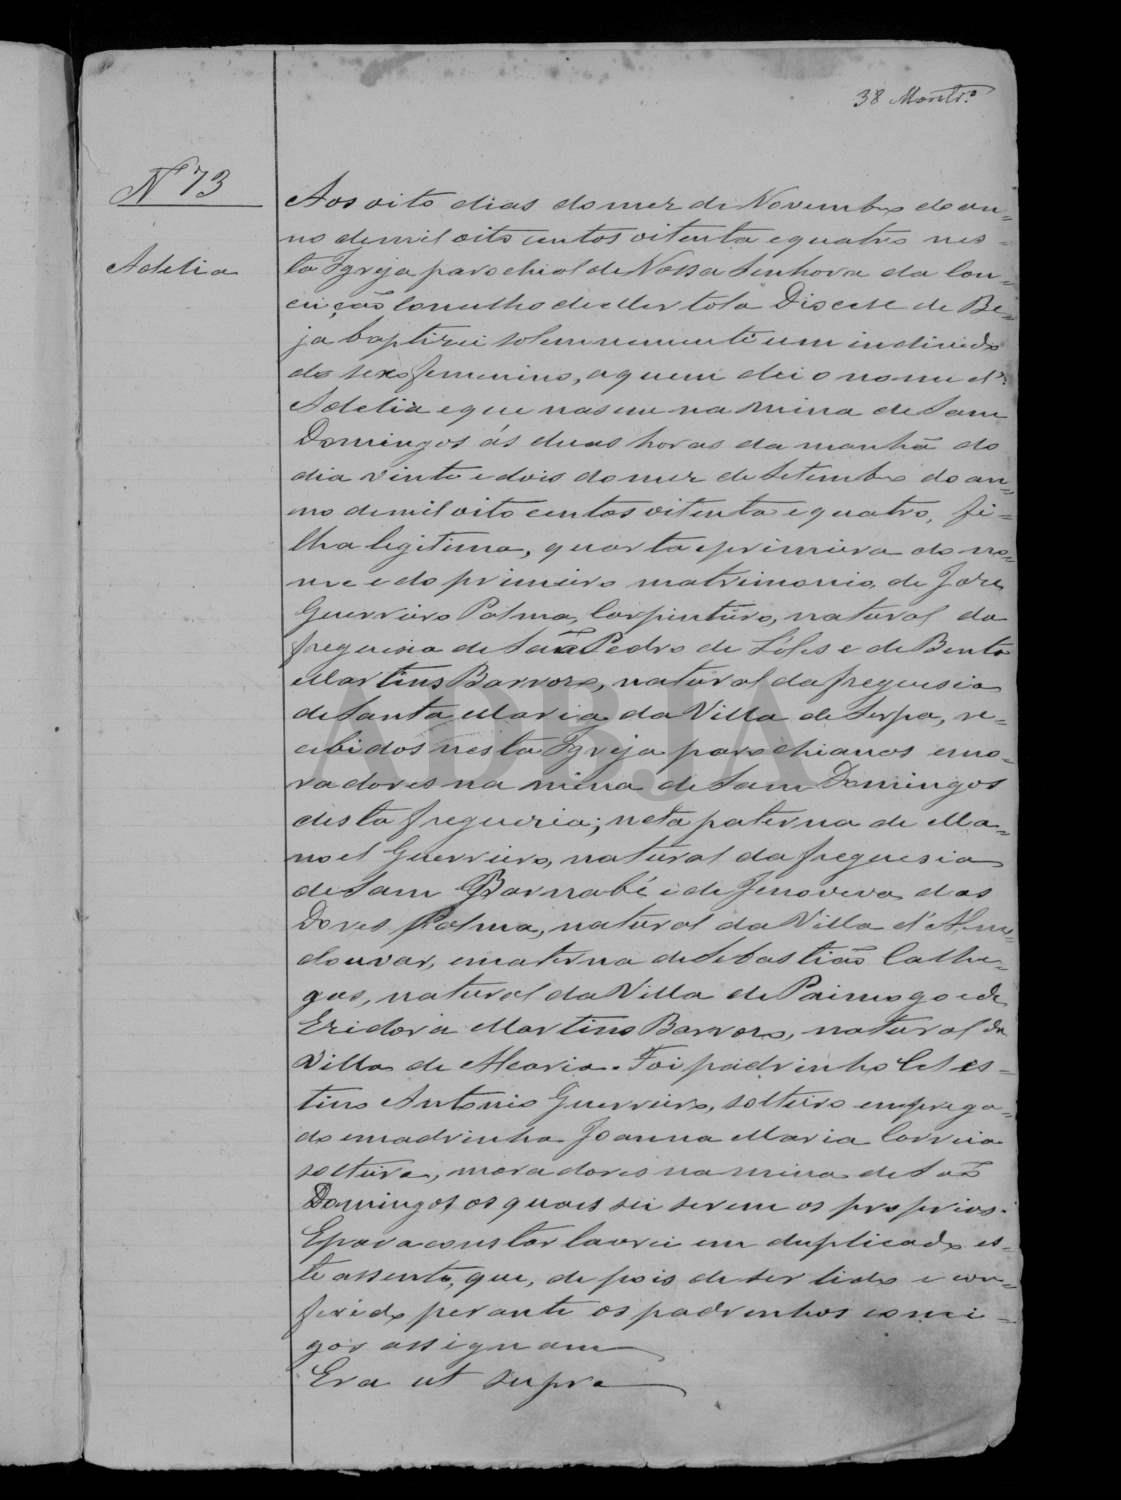 38 Montr.º
Nº 73
Adelia
Aos oito dias do mez de Novembro do an-
no de mil oito centos oitenta e quatro nes-
ta Igreja parochial de Nossa Senhora da Con-
ceição Concelho de Mertola Diocese de Be-
ja baptizei solemnemente um individuo
do sexo femenino, a quem dei o nome d'
Adelia e que nasceu na mina de Sam
Domingos ás duas horas da manhã do
dia vinte e dois do mez de Setembro do an-
no de mil oito centos oitenta e quatro, fi-
lha legitima, quarta e primeira do no-
me e do primeiro matrimonio, de Jose
Guerreiro Palma, Carpinteiro, natural da
freguesia de São Pedro de Solis e de Benta
Martins Barroso, natural da freguesia
de Santa Maria da Villa de Serpa, re-
cebidos nesta Igreja parochianos e mo-
radores na mina de Sam Domingos
desta freguezia; neta paterna de Ma-
noel Guerreiro, natural da freguesia
de Sam Barnabé e de Jenoveva das
Dores Palma, natural da Villa d'Almo-
douvar, e materna de Sebastião Calhe-
gas, natural da Villa de Paimogo e de
Ezidora Martins Barroso, natural da
Villa de Alcaria. Foi padrinho Celes-
tino Antonio Guerreiro, solteiro emprega-
do e madrinha Joanna Maria Correia
solteira, moradores na mina de São
Domingos, os quaes sei serem os proprios.
E para constar lavrei em duplicado es-
te assento, que, depois de ser lido e con-
ferido perante os padrinhos comi-
gor assignam
Era ut supra
ADBJA